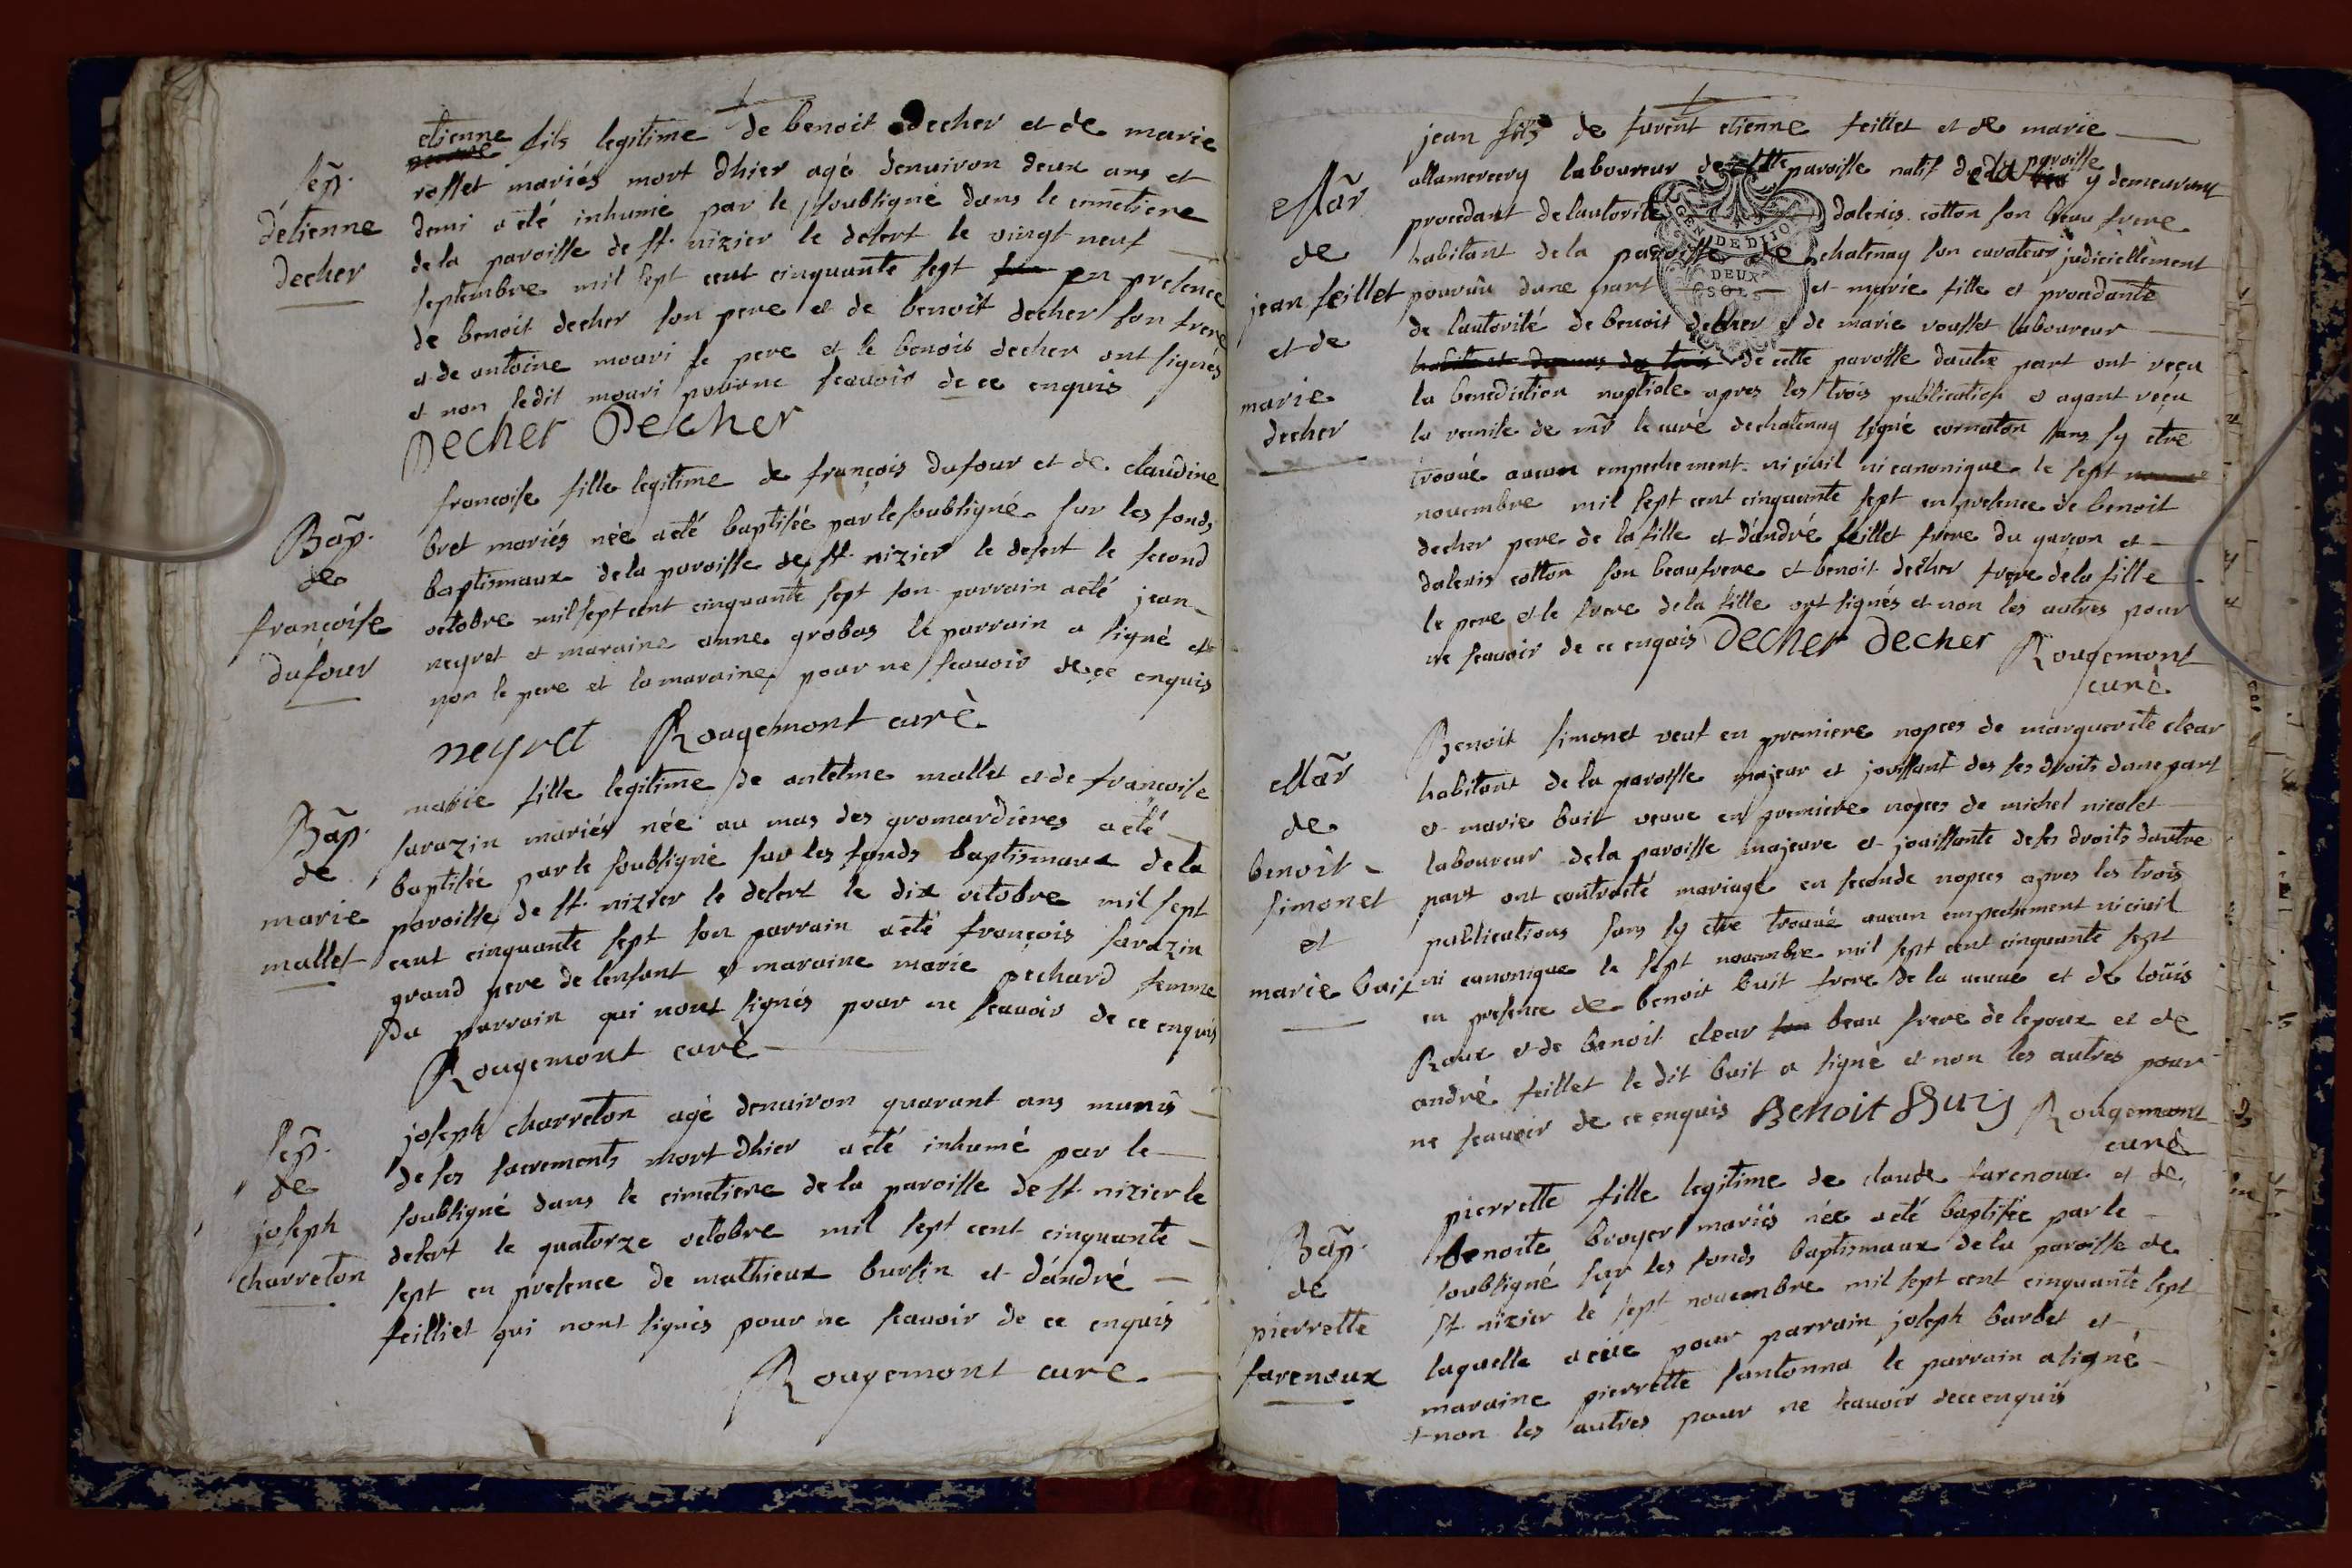 Sep.
d'étienne
decher
etienne fils legitime de benoit decher et de marie
rosset mariés mort dhier agé denuiron deux ans et
demi a eté inhumé par le soubsigné dans le cimetiere
de la paroisse de st. nizier le desert le vingt neuf
septembre mil sept cent cinquante sept en presence
de benoit decher son pere et de benoit decher son frere
et de antoine mouri le pere et le benois decher ont signés
et non ledit mouri pour ne scauoir de ce enquis
Decher Decher
Bap.
de
francoise
dufour
francoise fille legitime de françois dufour et de claudine
bret mariés née a eté baptisée par le soubsigné sur les fonds
baptismaux de la paroisse de st. nizier le desert le second
octobre mil sept cent cinquante sept son parrain a eté jean
neyret et maraine anne grobas le parrain a signé et
non le pere et la maraine pour ne scauoir de ce enquis
neyret Rougemont curè
Bap.
de
marie
mallet
marie fille legitime de antelme mallet et de francoise
sarazin mariés née au mas des gromardieres a eté
baptisée par le soubsigné sur les fonds baptismaux de la
paroisse de st. nizier le desert le dix octobre mil sept
cent cinquante sept son parrain a eté françois sarazin
grand pere de lenfant et maraine marie pechard femme
du parrain qui nont signés pour ne scauoir de ce enquis
Rougemont curè
Sep.
de
joseph
charreton
joseph charreton agé denuiron quarant ans munis
de ses sacrements mort dhier a eté inhumé par le
soubsigné dans le cimetiere de la paroisse de st. nizier le
desert le quatorze octobre mil sept cent cinquante
sept en presence de mathieux burlin et d'andré
feilliet qui nont signés pour ne scauoir de ce enquis
Rougemont curè
Mar
de
jean feillet
et de
marie
decher
jean fils de furent etienne feillet et de marie
allamercery laboureur de cette paroisse natif de la paroisse y demeurant
procedant de lautorité dalexis cotton son beau frere
habitant de la paroisse de chatenay son curateur judiciellement
pourvûu dune part et marie fille et procedante
de lautorité de benoit decher et de marie rousset laboureur
de cette paroisse dautre part ont reçu
la benediction nuptiale apres les trois publication et ayant reçu
la remise de mr le curé de chatenay signé cornaton sans sy etre
trouué aucun empechement ni ciuil ni canonique le sept
nouembre mil sept cent cinquante sept en presence de benoit
decher pere de la fille et d'andré feillet frere du garçon et
dalexis cotton son beaufrere et benoit decher frere de la fille
le pere et le frere de la fille ont signés et non les autres pour
ne scauoir de ce enquis Decher decher Rougemont
curè
GEN DE DIJON
DEUX
SOLS
Mar
de
benoit
simonet
et
marie buit
Benoit simonet veuf en premiere nopces de marguerite clear
habitant de la paroisse majeur et jouissant des ses droits dune part
et marie buit veuue en premiere nopces de michel nicolet
laboureur de la paroisse majeure et jouissante de ses droits dautre
part ont contracté mariage en seconde nopces apres les trois
publications sans sy etre trouué aucun empechement ni ciuil
ni canonique le sept nouembre mil sept cent cinquante sept
en presence de benoit buit frere de la veuue et de louis
Roux et de benoit clear beau frere de lepoux et de
andré feillet le dit buit a signé et non les autres pour
ne scauoir de ce enquis Benoit Buiz Rougemont
curè
Bap.
de
pierrette
farenoux
pierrette fille legitime de claude farenoux et de
benoite broyer mariés née a eté baptisée par le
soubsigné sur les fonds baptismaux de la paroisse de
st. nizier le sept nouembre mil sept cent cinquante sept
laquelle a eue pour parrain joseph barbet et
maraine pierrette santonna le parrain a signé
et non les autres pour ne scauoir de ce enquis